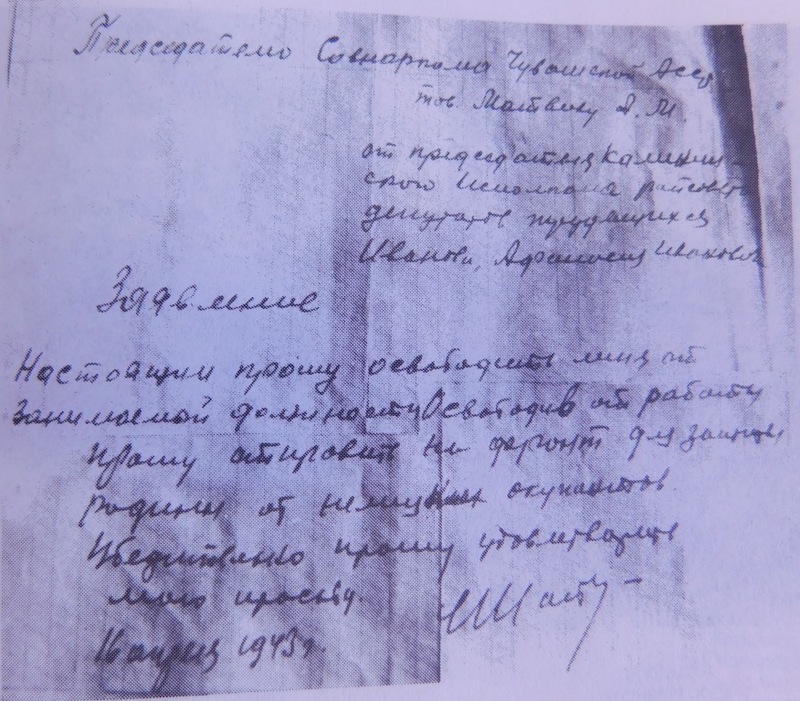 Председателю Совнаркома Чувашской Асср
тов. Матвику А. М.
от председателя Калинин-
ского Исполкома райсовета
депутатов трудящихся
Иванова, Афанасия Ивановича
Заявление
Настоящим прошу освободить меня от
занимаемой должности Освободив от работы
прошу отправить на фронт для защиты
родины от немецких окупантов.
Убедительно прошу удовлетворить
мою просьбу.
16 апреля 1943 г.